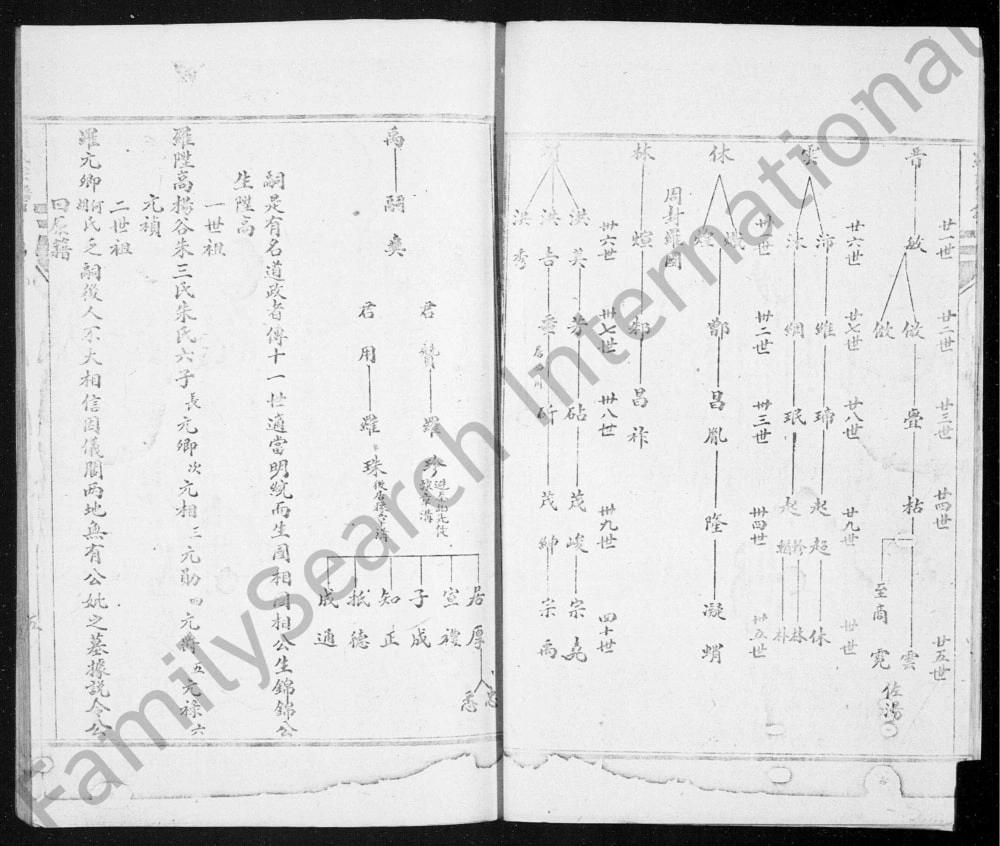 廿一世 廿二世 廿三世 廿四世 廿五世
晉 放 倣 疊 枯 雲
佐湯
傚 至商 霓
廿六世 廿七世 廿八世 廿九世 卅世
雲 沛 維 㻛 起超 休
沐 綱 珉 起 林 朴
卅一世 卅二世 卅三世 卅四世 卅五世
休 鄭 昌胤 隆 凝蛸
周封羅國
林 煊 鄀 昌祚
卅六世 卅七世 卅八世 卅九世 四十世
洪英 芳 砧 茂峻 宗堯
洪吉 垂 斫 茂紳 宗禹
洪秀
禹 嗣 奭
君贊 羅珍
君用 羅珠
居厚
宣禮
子成
知正
抵德
成通
忠
悉
嗣是有名道政者傳十一世適當明統而生国相国相公生錦錦公
生陞高
一世祖
羅陞高楊谷朱三氏朱氏六子長元卿次元相三元勛四元將五元祿六
元禎
二世祖
羅元卿何胡氏之嗣後人不大相信因儀閬兩地無有公妣之墓據説今公
回原籍
FamilySearch International